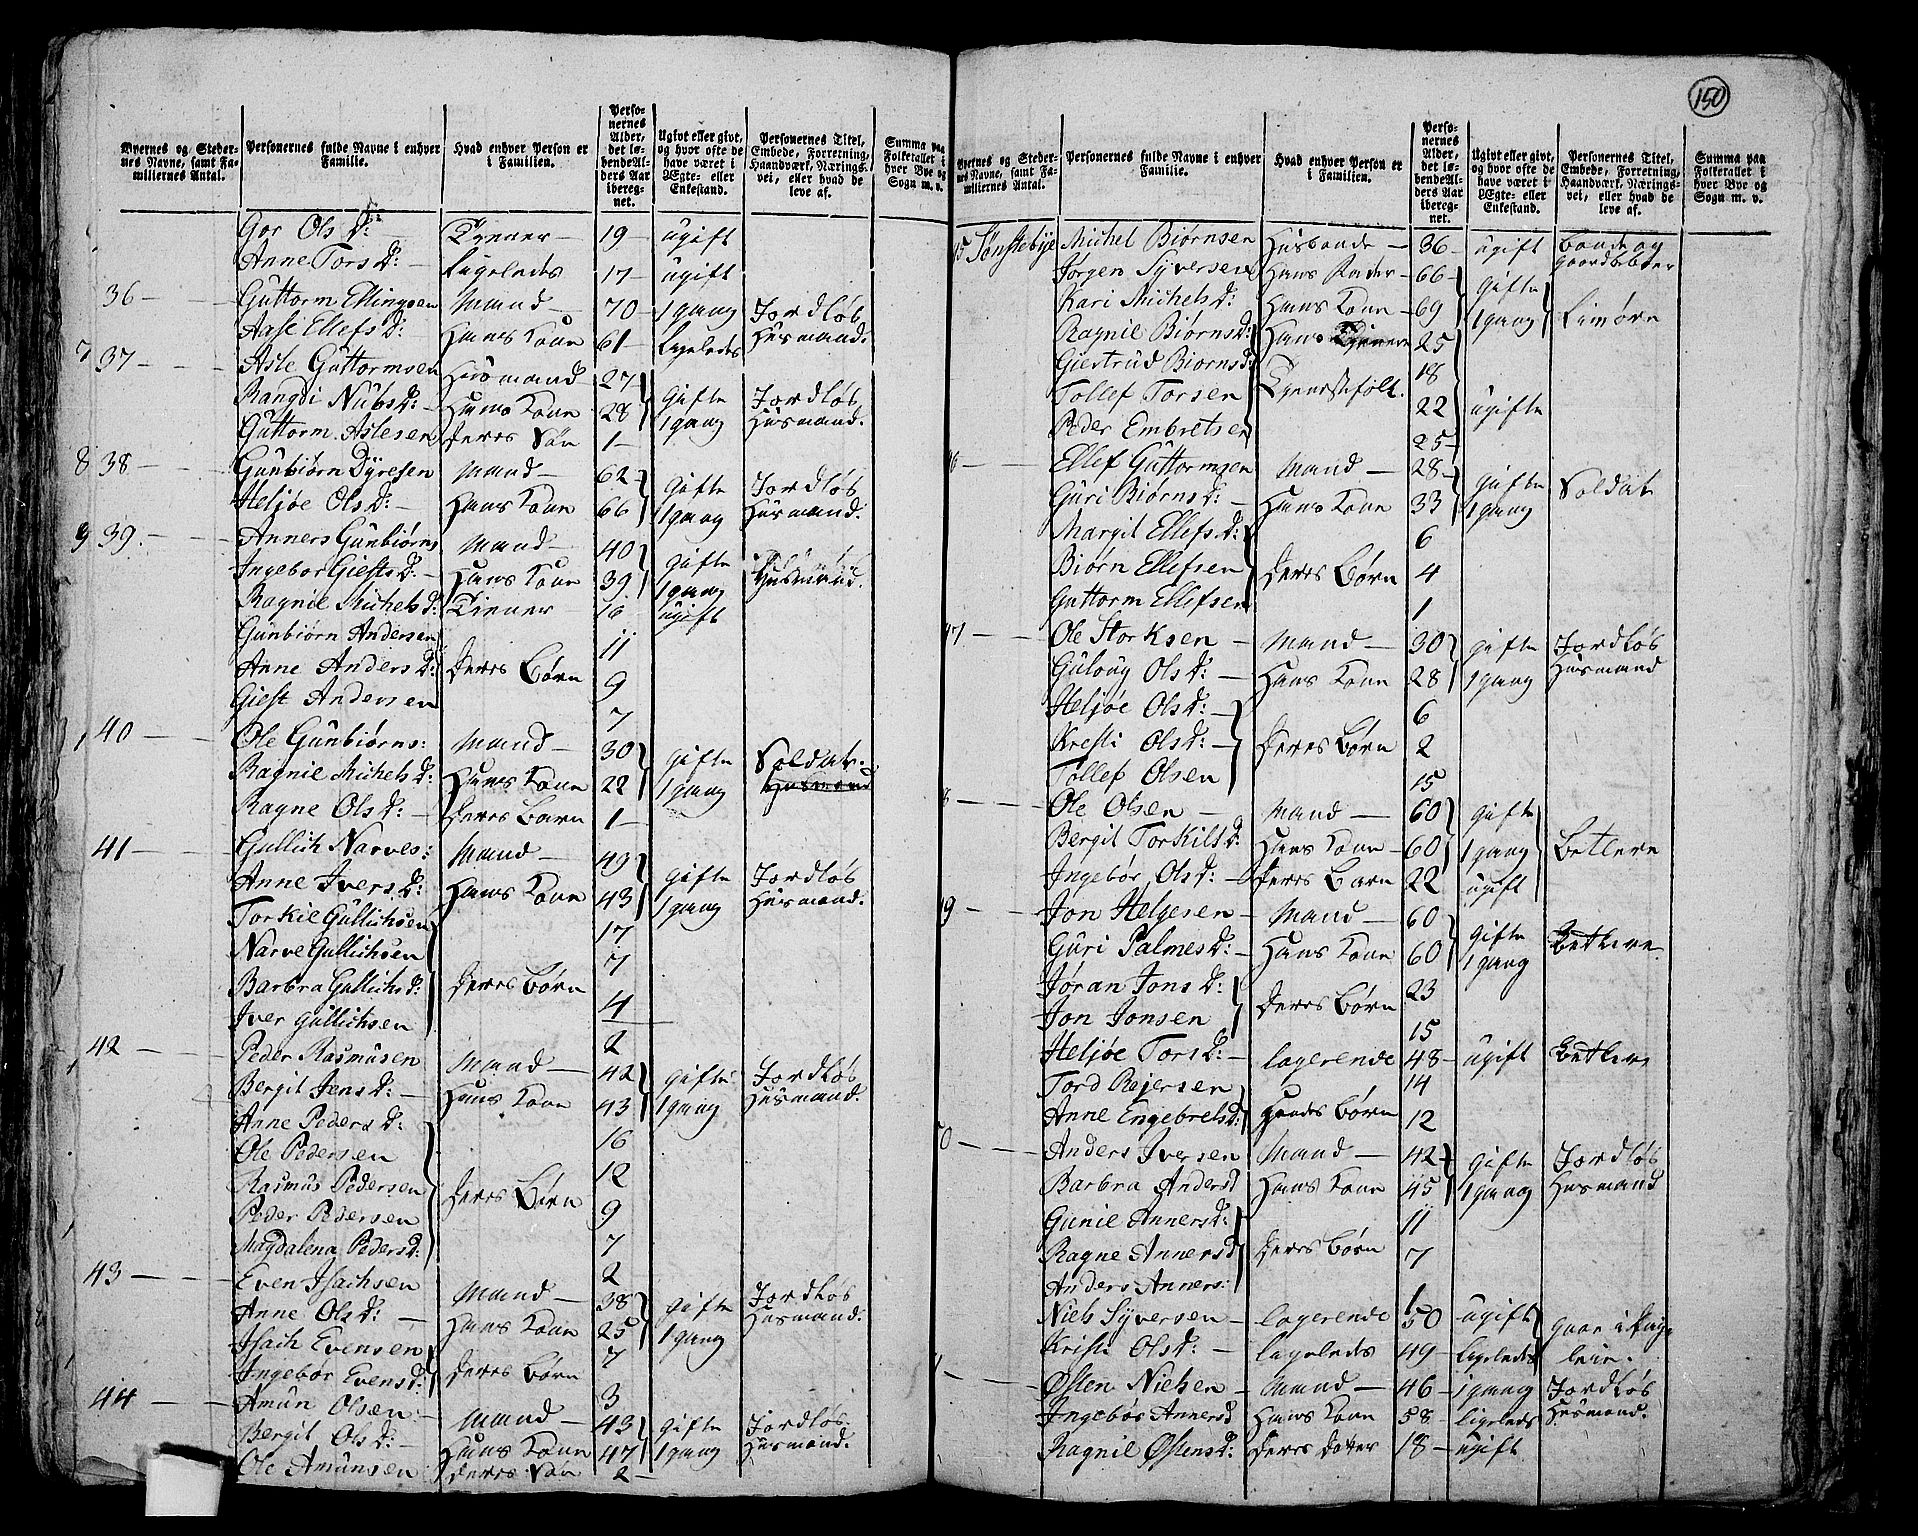 150
Byernes og Stedernes Navne, samt Familiernes Antal.
Personernes fulde Navne i enhver Familie.
Hvad enhver Person er i Familien.
Personernes Alder, det løbende Alders Aar iberegnet.
Ugivt eller givt, og hvor ofte de have været i Ægte- eller Enkestand.
Personernes Titel, Embede, Forretning, Haandværk, Næringsvei, eller hvad de leve af.
Summa paa Folketallet i hver Bye og Sogn m. v.
Gor Ols D: Tjener 19 ugift
Anne Tors D: Ligeledes 17 ugift
36 Guttorm Ellingsen Mand 70 1 gang Jordløs
Aase Ellefs D: Hans Kone 61 Ligeledes Husmand.
37 Asle Guttormsen Husmand 27 gifte Jordløs
Rangdi Nubs D: Hans Kone 28 1 gang Husmand.
Guttorm Aslesen deres Søn 1
38 Gunbiørn Dyresen Mand 62 gifte Jordløs
Heljøe Ols D: Hans Kone 66 1 gang Husmand.
39. Anners Gunbiørns Mand 40 gifte
Ingebor Giests D: Hans Kone 39 1 gang Husmand.
Ragnil Michels D: Tiener 16 ugift
Gunbiørn Andersen 11
Anne Anders D: deres Børn 9
Giest Andersen 7
40 Ole Gunbiørns: Mand 30 gifte Soldat.
Ragnil Michels D: Hans Kone 22 1 gang Husmand
Ragne Ols D: deres Barn 1
41 Gullich Narves: Mand 49 gifte Jordløs
Anne Ivers D: Hans Kone 43 1 gang Husmand.
Torkil Gullichsen 17
Narve Gullichsen 7
Barbra Gullichs D: deres Børn 4
Iver Gullichsen 2
42 Peder Rasmusen Mand 42 gifte Jordløs
Bergit Jens D: Hans Kone 43 1 gang Husmand.
Anne Peders D: 16
Ole Pedersen 12
Rasmus Pedersen deres Børn 9
Peder Pedersen 7
Magdalena Peders D: 2
43 Even Isachsen Mand 38 gifte Jordløs
Anne Ols D: Hans Kone 25 1 gang Husmand.
Isach Evensen 7
Ingebor Evens D: deres Børn 3
44 Amun Olsen Mand 43 gifte Jordløs
Bergit Ols D: Hans Kone 47 1 gang Husmand.
Ole Amunsen deres Søn 2
Byernes og Stedernes Navne, samt Familiernes Antal.
Personernes fulde Navne i enhver Familie.
Hvad enhver Person er i Familien.
Personernes Alder, det løbende Alders Aar iberegnet.
Ugivt eller givt, og hvor ofte de have været i Ægte- eller Enkestand.
Personernes Titel, Embede, Forretning, Haandværk, Næringsvei, eller hvad de leve af.
Summa paa Folketallet i hver Bye og Sogn m. v.
5 Sønstebye Michel Biørnsen Husbonde 36 ugift bonde og
Jørgen Syversen Hans Fader 66 gifte gaardbeboer
Kari Michels D: Hans Kone 69 1 gang
Ragnil Biørns D: Hans 25
Giestrud Biørns D: 18
Tollef Torsen Tjenestefolk. 22 ugifte
Peder Embretsen 25
6 Ellef Guttormsen Mand 28 gifte Soldat
Guri Biørns D: Hans Kone 33 1 gang
Margit Ellefs D: 6
Biørn Ellefsen deres Børn 4
Guttorm Ellefsen 1
47 Ole Storksen Mand 30 gifte Jordløs
Gulaug Ols D: Hans Kone 28 1 gang Husmand
Heljøe Ols D: 6
Kresti Ols D: deres Børn 2
Tollef Olsen 15
8 Ole Olsen Mand 60 gifte
Bergit Torkils D: Hans Kone 60 1 gang Betlere
Ingebør Ols D: deres Barn 22 ugift
49 Jon Helgesen Mand 60 gifte
Guri Palmes D: Hans Kone 60 1 gang Betlere
Jøran Jons D: 23
Jon Jonsen deres Børn 15
Heljøe Tors D: logerende 48 ugift Betlere
Tord Rejersen 14
Anne Engebrets D: Hendes Børn 12
50 Anders Iversen Mand 42 gifte Jordløs
Barbra Anders D Hans Kone 45 1 gang Husmand
Gunil Anners D: 11
Ragne Anners D deres Børn 7
Anders Anners: 1
Niels Syversen logerende 50 ugift gaar i
Kristi Ols D: ligeledes 49 Ligeledes
Østen Nielsen Mand 46 1 gang Jordløs
Ingebør Anners D Hans Kone 58 Ligeleds Husmand.
Ragnil Østens D: deres Dotter 18 ugift